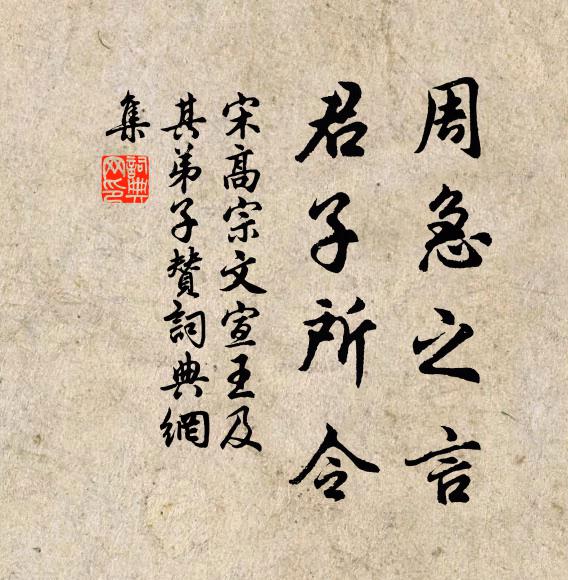 周急之言
君子所令
宋高宗文宣王及
其弟子赞詞典網
集
詞典网印